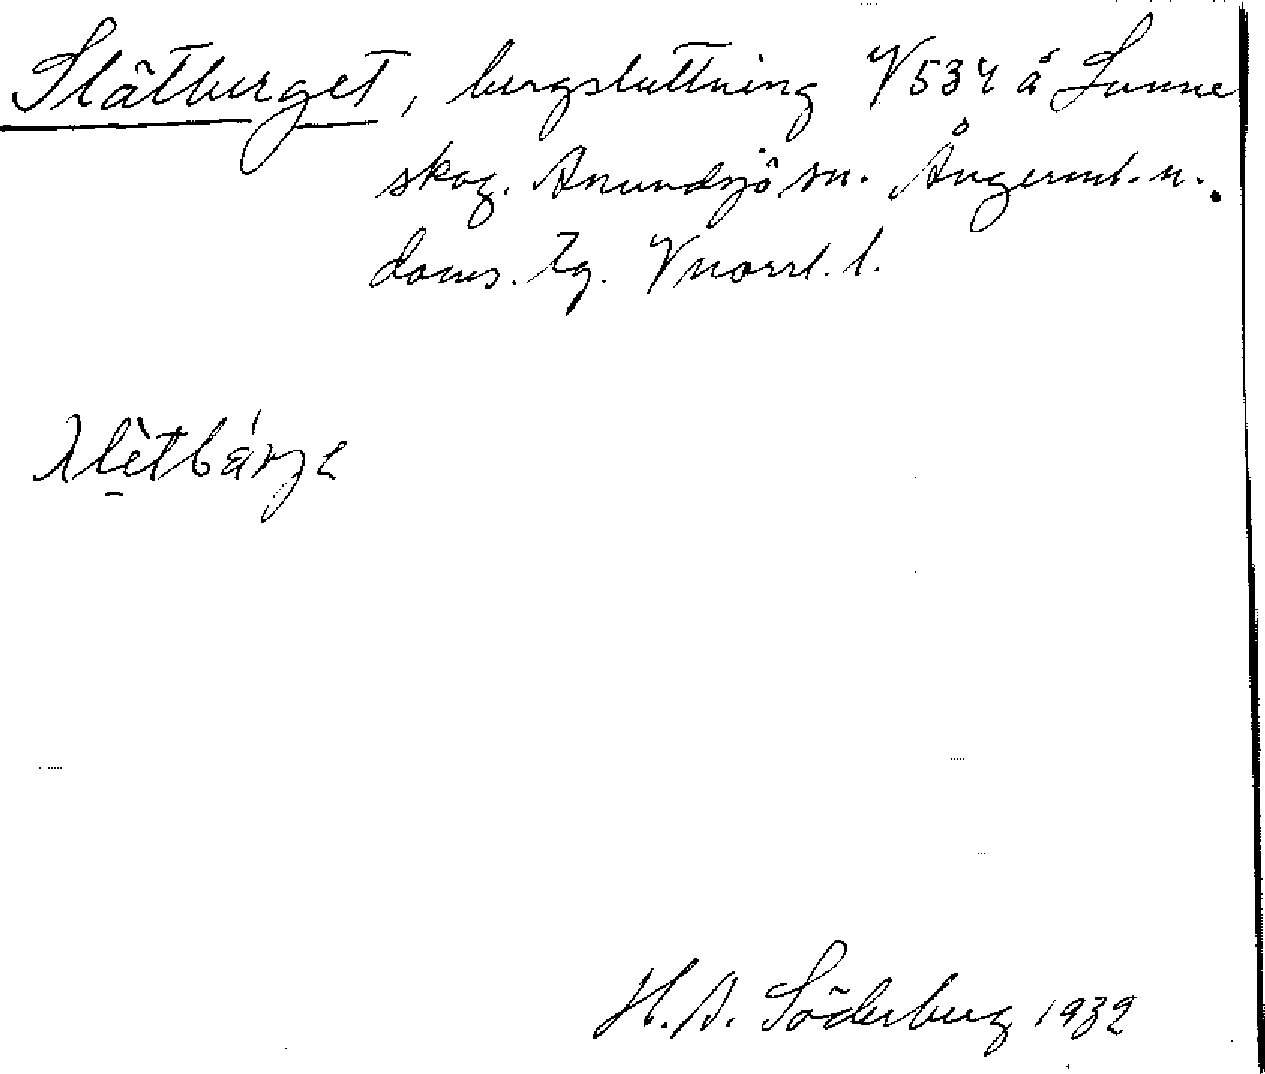 Slätberget, bergsluttning V 534 å Sunne
skog. Anundsjö sn. Ångerml. n.
doms. Tg. Vnorrl. l.
H. A. Söderberg 1932